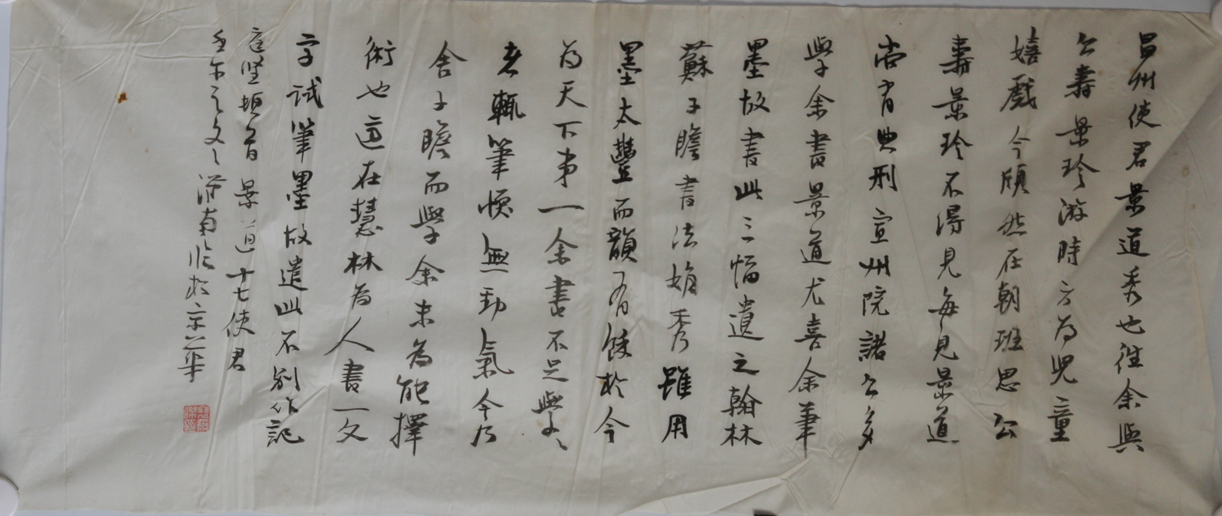 昌州使君景道秀也往余與
公壽景珍游時方為兒童
嬉戲今頎然在朝班思公
壽景珍不得見每見景道
尚有典刑宣州院諸公多
學余書景道尤喜余筆
墨故書此三幅遺之翰林
蘇子瞻書法娟秀雖用
墨太豐而韻有餘於今
為天下第一余書不足學々
者輒筆愞無勁氣今乃
舍子瞻而學余未為能擇
術也適在慧林為人書一文
字試筆墨故遣此不別作記
庭堅頓首景道十七使君
濟南臨於京華